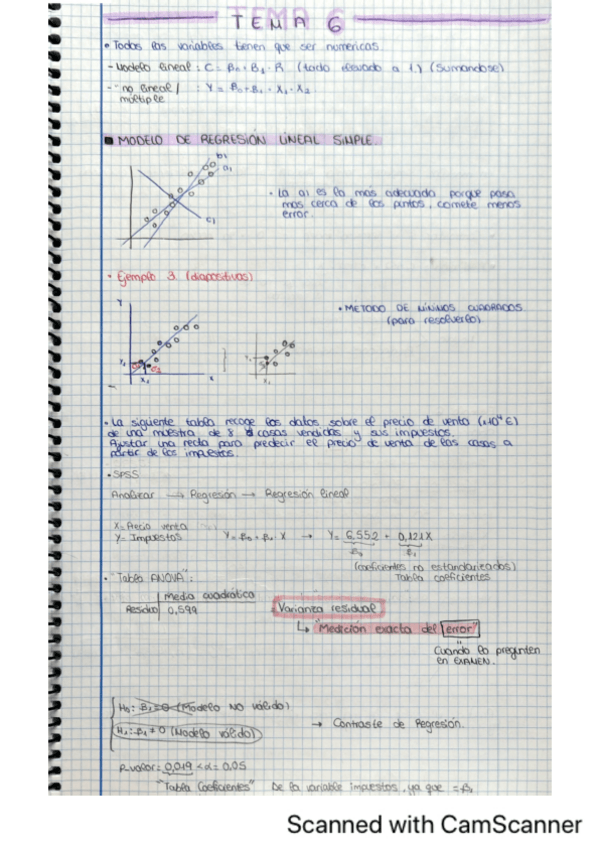 TEMA 6
• Todas las variables tienen que ser numéricas.
- Modelo lineal : C = β0 + β1 · R (todo elevado a 1) (Sumandose)
- " no lineal / : Y = β0 + β1 · X1 · X2
múltiple
■ MODELO DE REGRESIÓN LINEAL SIMPLE.
b1
a1
c1
• La a1 es la mas adecuada porque pasa
mas cerca de los puntos, comete menos
error.
• Ejemplo 3. (diapositivas)
Y
X1
X
• METODO DE MÍNIMOS CUADRADOS
(para resolverlo)
• La siguiente tabla recoge los datos sobre el precio de venta (x10⁴ €)
de una muestra de 8 casas vendidas y sus impuestos.
Ajustar una recta para predecir el precio de venta de las casas a
partir de los impuestos.
• SPSS
Analizar → Regresión → Regresión lineal
X = Precio venta
Y = Impuestos
Y = β0 + β1 · X → Y = 6,552 + 0,121X
β0 β1
(coeficientes no estandarizados)
Tabla coeficientes
• "Tabla ANOVA":
media cuadrática
Residuo 0,599
Varianza residual
↳ "Medición exacta del error"
Cuando lo pregunten
en EXAMEN.
H0 : β1 = 0 (Modelo NO válido)
H1 : β1 ≠ 0 (Modelo válido)
→ Contraste de Regresión.
P-valor = 0,019 < α = 0,05
"Tabla Coeficientes" De la variable impuestos, ya que = β1
Scanned with CamScanner